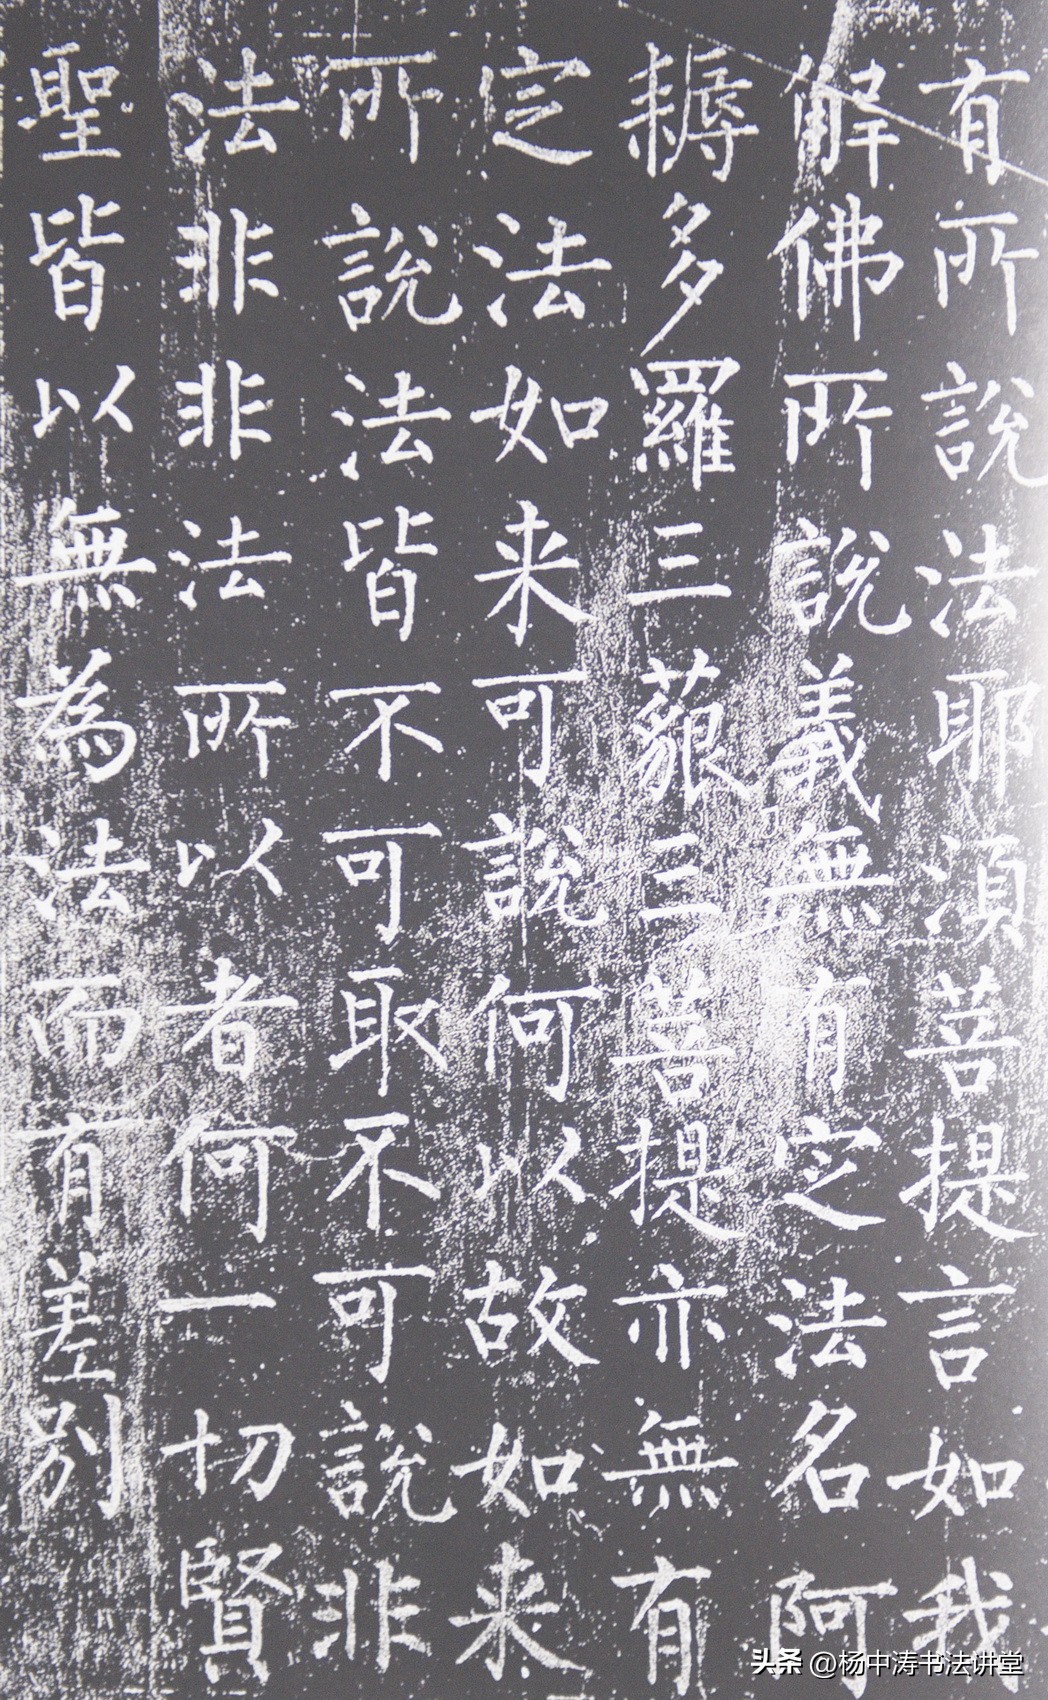 有所說法耶須菩提言如我
解佛所說義無有定法名阿
耨多羅三藐三菩提亦無有
定法如来可說何以故如来
所說法皆不可取不可說非
法非非法所以者何一切賢
聖皆以無為法而有差別
头条 @杨中涛书法讲堂